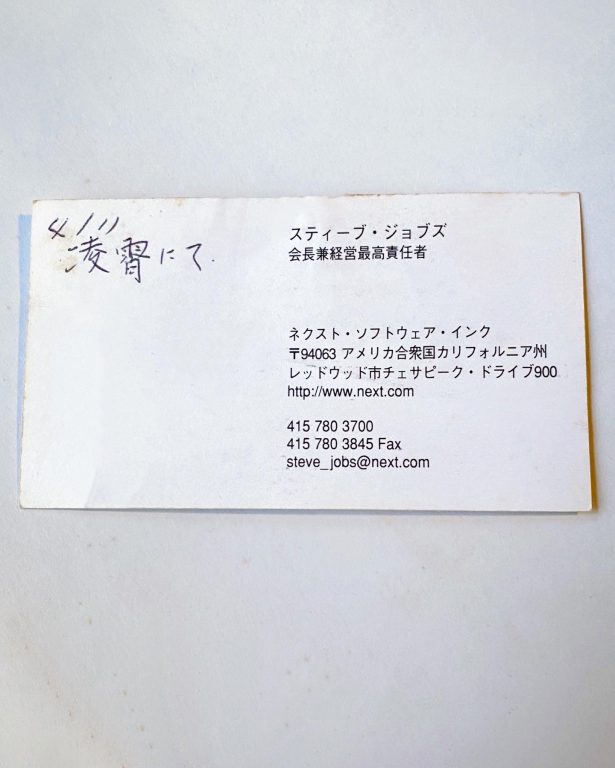 4/11
凌霄にて.
スティーブ・ジョブズ
会長兼経営最高責任者
ネクスト・ソフトウェア・インク
〒94063 アメリカ合衆国カリフォルニア州
レッドウッド市チェサピーク・ドライブ900
http://www.next.com
415 780 3700
415 780 3845 Fax
steve_jobs@next.com